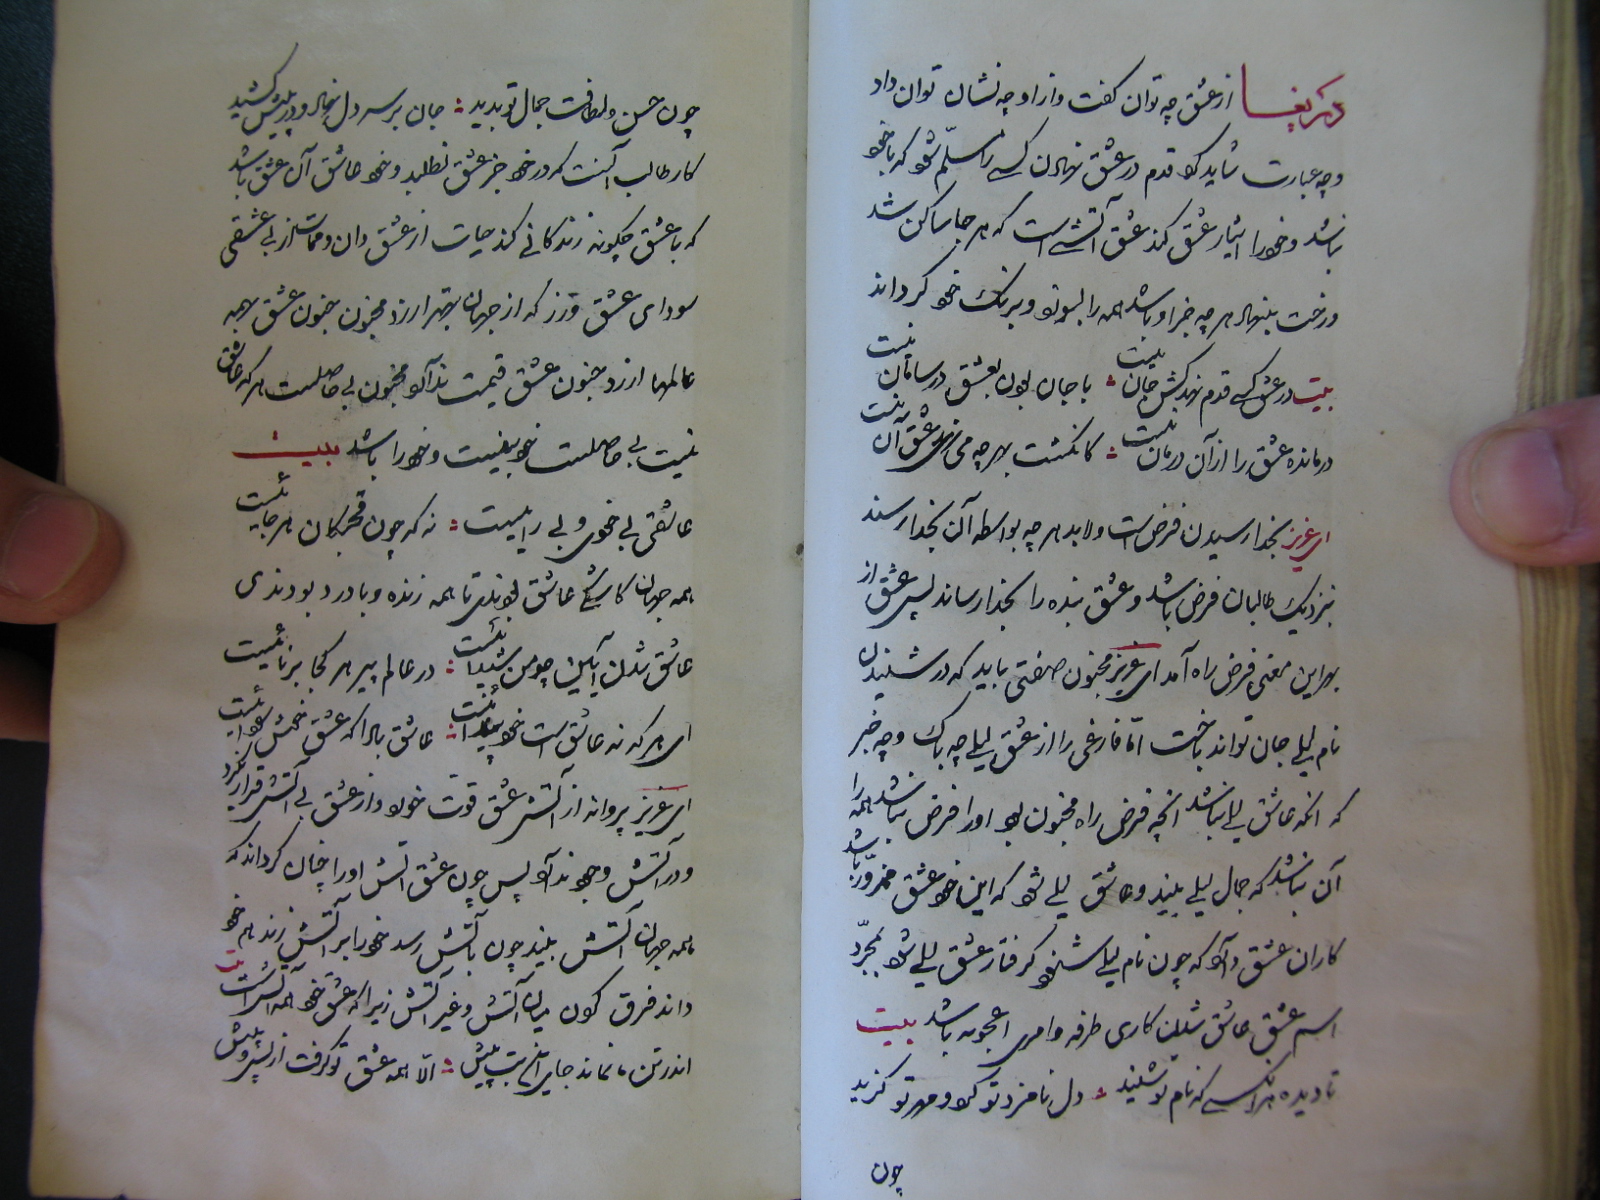 دریغا از عشق چه توان گفت و از او چه نشان توان داد
و چه عبارت شاید کرد قدم در عشق نهادن کسے را مسلّم شود که با خود
نباشد و خود را ایثار عشق کند عشق آتشے است که هر جا ساکن شد
رخت بنهد هر چه جز او باشد همه را بسوزد و برنگ خود گرداند
بیت در عشق کسے قدم نهد کش جان نیست : با جان بودن بعشق در سامان نیست
درمانده عشق را از آن درمان نیست : کانگشت بهر چه می نهی عشق آن نیست
ای عزیز بخدا رسیدن فرض است و لابد هر چه بواسطه آن بخدا رسند
نزدیک طالبان فرض باشد و عشق بنده را بخدا رساند پس عشق از
بهر این معنی فرض راه آمد ای عزیز مجنون صفتی باید که در شنیدن
نام لیلے جان تواند باخت امّا فارغی را از عشق لیلے چه باک و چه خبر
که آنکه عاشق لیلے نباشد آنچه فرض راه مجنون بود او را فرض نباشد همه را
آن نباشد که جمال لیلے بیند و عاشق لیلے شود که این خود عشق مزوّر باشد
کاران عشق دارد که چون نام لیلے شنود گرفتار عشق لیلے شود بمجرّد
اسم عشق عاشق شدن کاری طرفه و امری اعجوبه باشد بیت
نادیده هر آنکسے که نام تو شنید : دل نامزد تو کرد و مهر تو گزید
چون
چون حسن و لطافت جمال تو بدید : جان بر سر دل نهاد و در پیش کشید
کار طالب آنست که در خود جز عشق نطلبد و خود عاشق آن عشق باشد
که با عشق چگونه زندگانے کند حیات از عشق دان و ممات از بے عشقی
سودای عشق ورز که از جهان بهتر ارزد مجنون جنون عشق بهمه
عالمها ارزد جنون عشق قیمت ندارد مجنون بے حاصلست هر که عاشق
نیست بے حاصلست خود بینیست و خود را باشد بیت
عاشقی بے خودی و بے رائیست : نه که چون قحبکان هر جائیست
همه جهان کاشکے عاشق بودندی تا همه زنده و با درد بودندی
عاشق شدن آیین چو من شیدائیست : در عالم پیر هر کجا برنائیست
ای هر که نه عاشق است خود پیدائیست : عاشق بادا که عشق خوش سودائیست
ای عزیز پروانه از آتش عشق قوت خورد و از عشق بے آتش قرار نگیرد
و در آتش وجود ندارد پس چون عشق آتش او را چنان گرداند که
همه جهان آتش بیند چون بآتش رسد خود را بر آتش زند هم خود
داند فرق کردن میان آتش و غیر آتش زیرا که عشق خود همه آتش است بیت
اندر تن ما نماند جای بت بیش : الّا همه عشق تو گرفت از پس و پیش